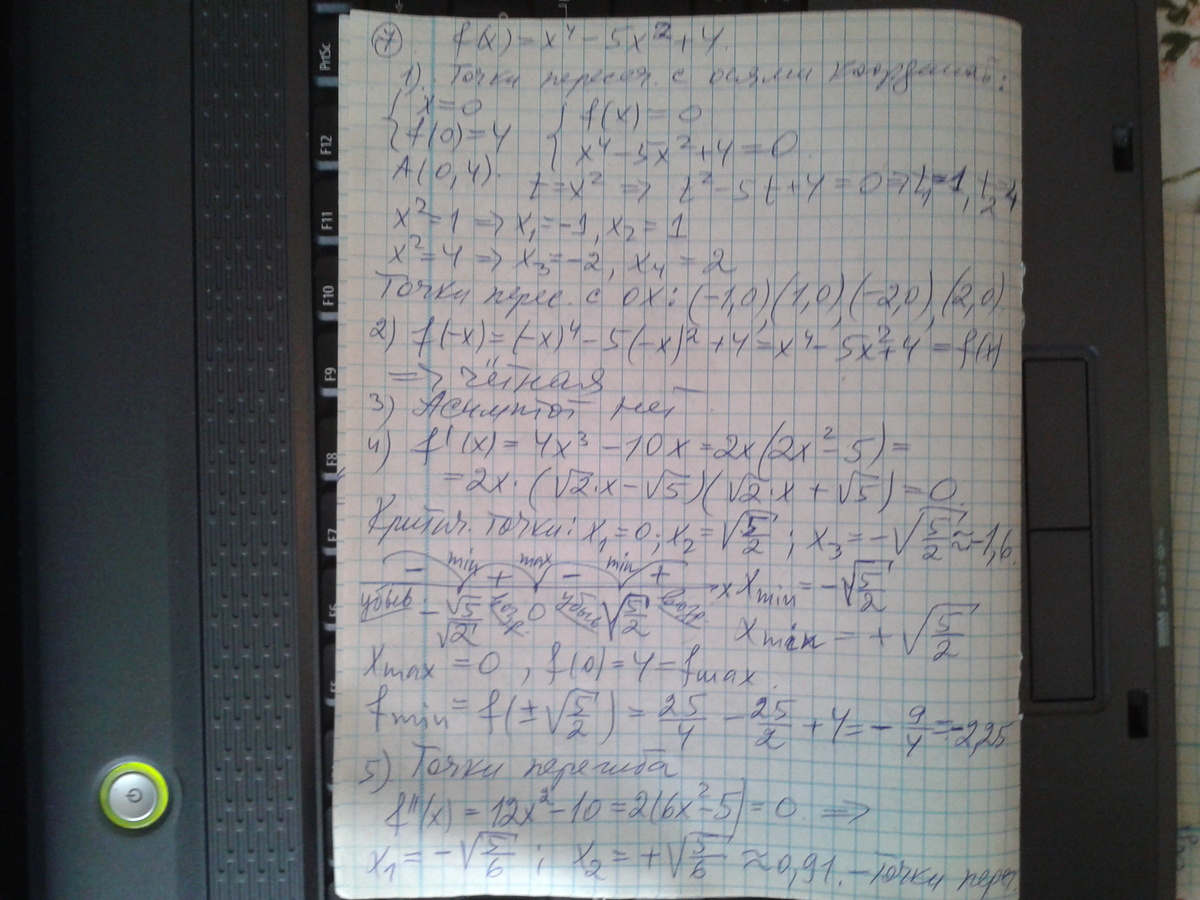 PrtSc
F12
F11
F10
F9
F8
F7
F6
⑦ f(x) = x⁴ − 5x² + 4.
1). Точки пересеч. с осями координат:
{ x = 0 { f(x) = 0
{ f(0) = 4 { x⁴ − 5x² + 4 = 0
A(0,4).
t = x² => t² − 5t + 4 = 0 => t₁ = 1, t₂ = 4
x² = 1 => x₁ = −1, x₂ = 1
x² = 4 => x₃ = −2, x₄ = 2
Точки перес. с OX: (−1,0), (1,0), (−2,0), (2,0).
2) f(−x) = (−x)⁴ − 5(−x)² + 4 = x⁴ − 5x² + 4 = f(x)
=> чётная
3) Асимптот нет.
4) f'(x) = 4x³ − 10x = 2x(2x² − 5) =
= 2x·(√2·x − √5)(√2·x + √5) = 0
Критич. точки: x₁ = 0; x₂ = √(5/2); x₃ = −√(5/2) ≈ −1,6.
− min + max − min + x
убыв −√5/√2 возр 0 убыв √(5/2) возр
xmin = −√(5/2)
xmin = +√(5/2)
xmax = 0, f(0) = 4 = fmax.
fmin = f(±√(5/2)) = 25/4 − 25/2 + 4 = −9/4 = −2,25
5) Точки перегиба
f''(x) = 12x² − 10 = 2(6x² − 5) = 0 =>
x₁ = −√(5/6); x₂ = +√(5/6) ≈ 0,91. − точки пере